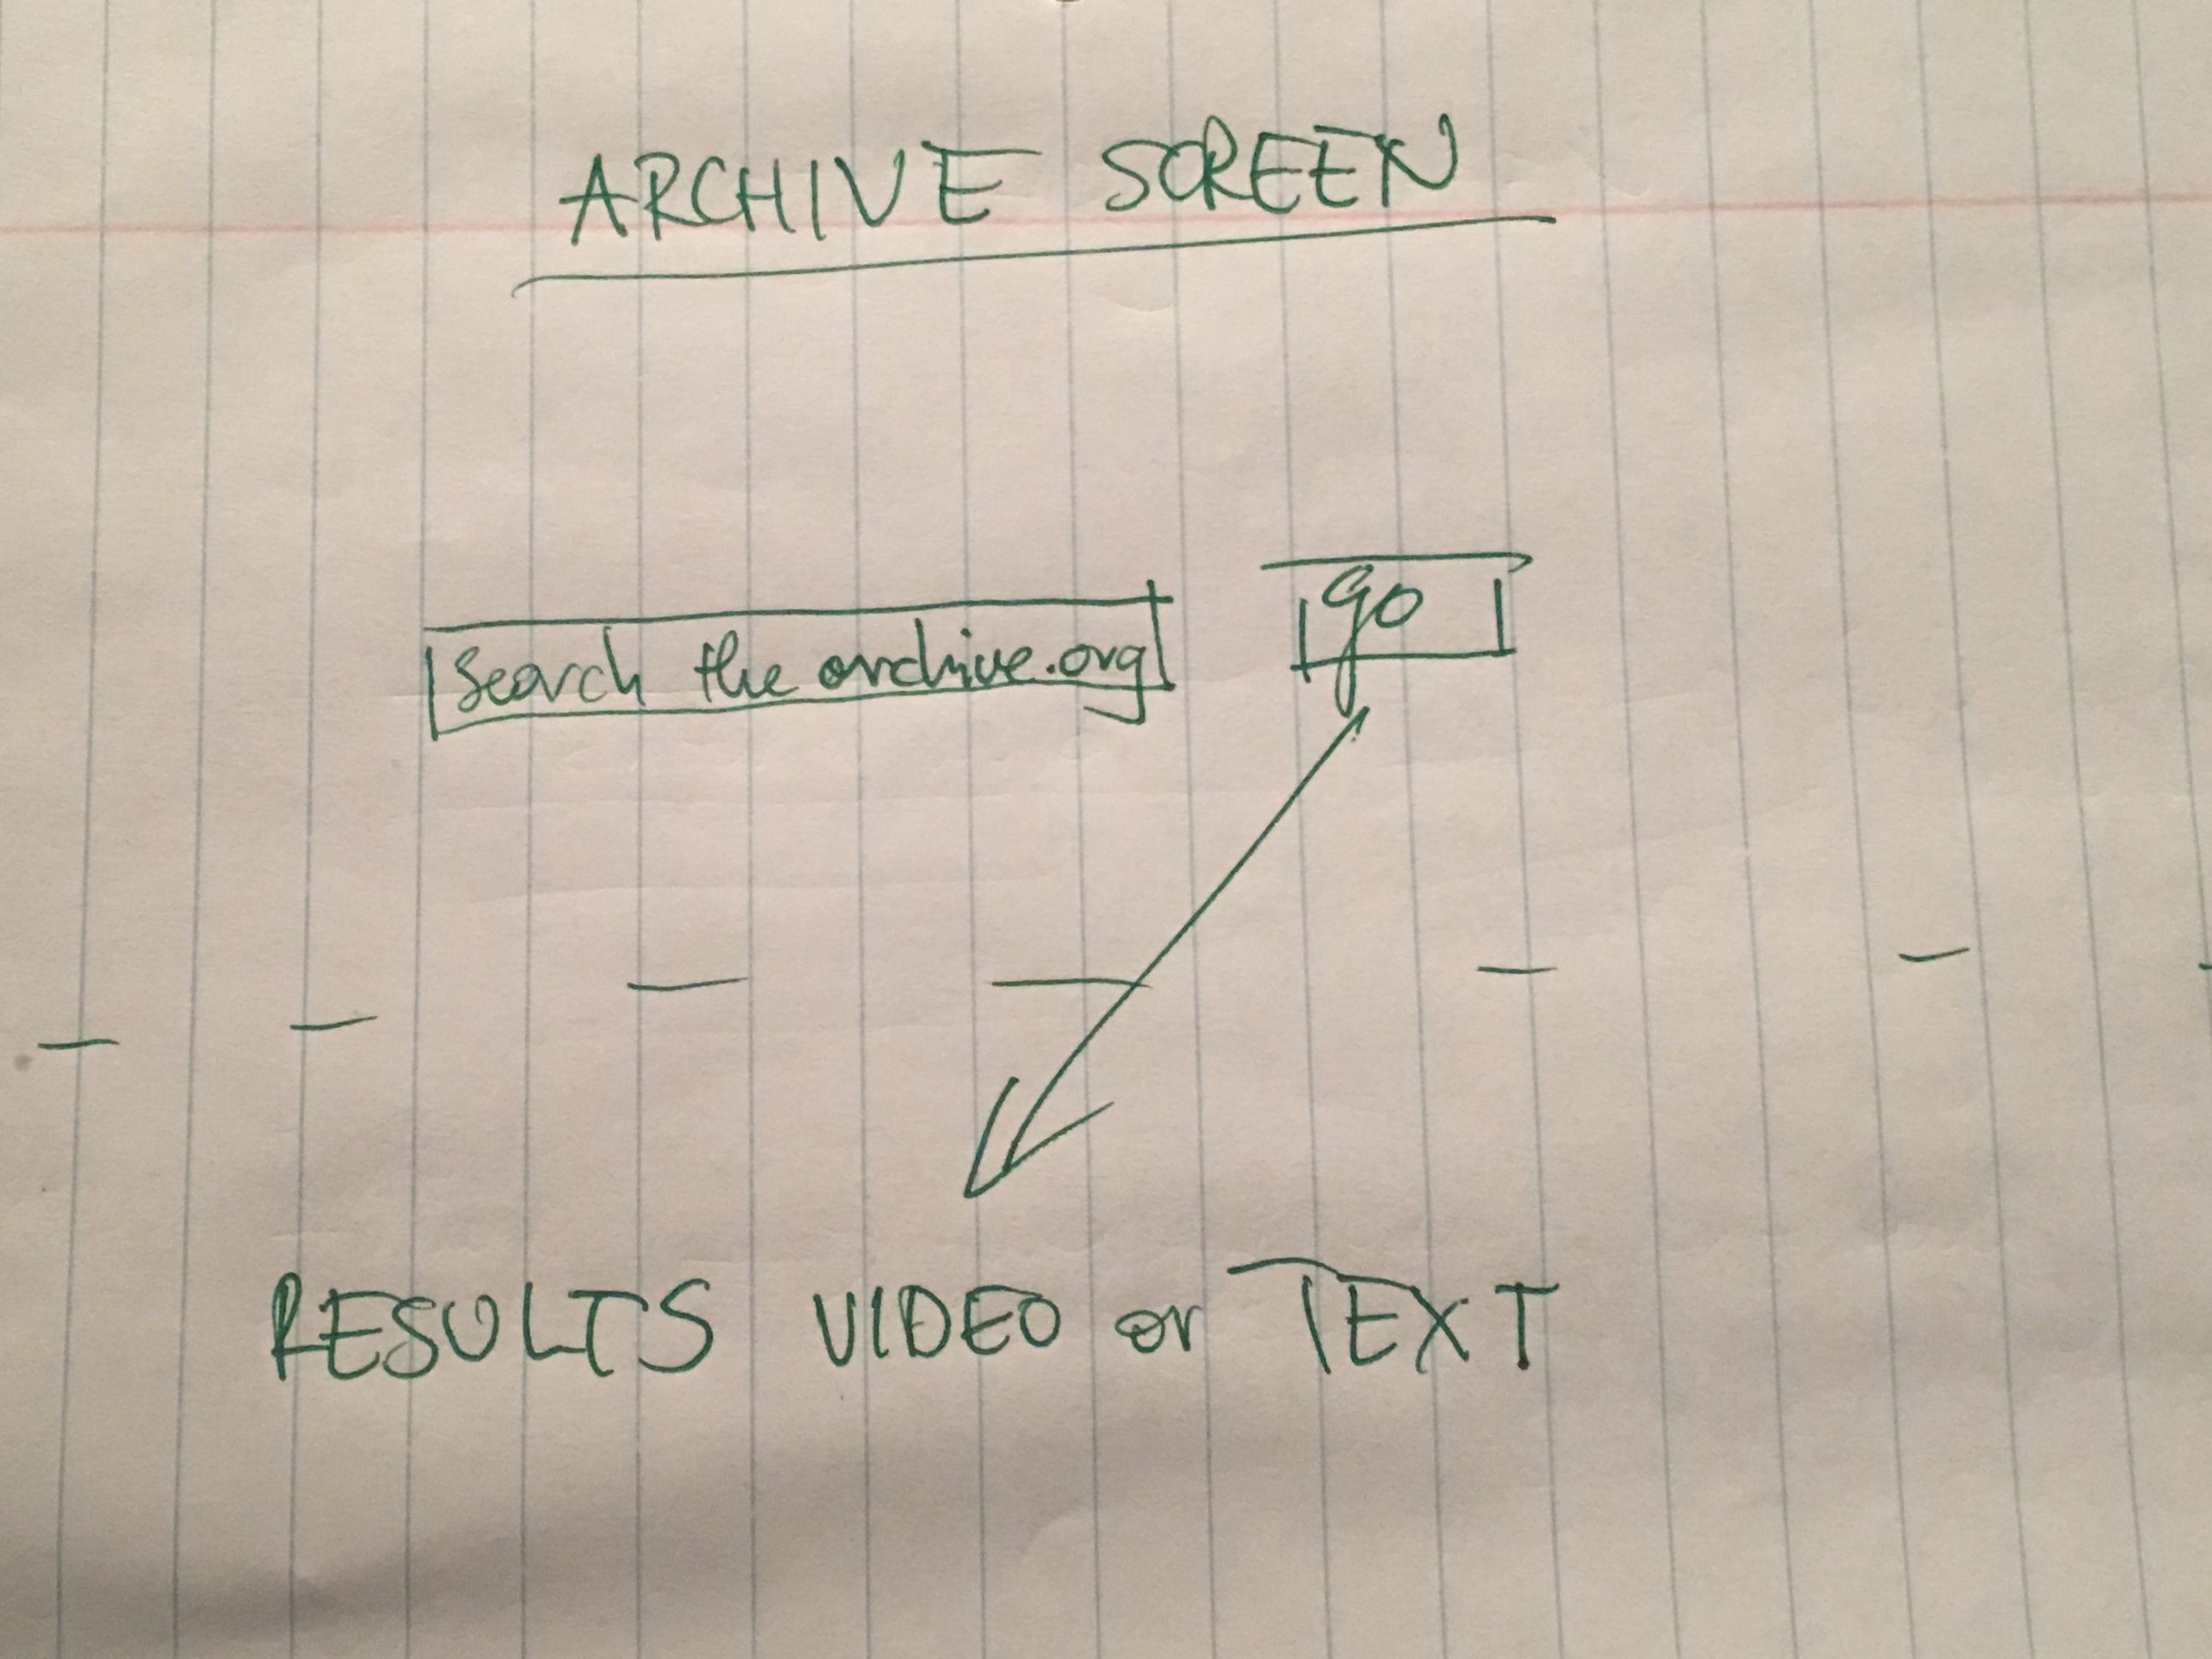 ARCHIVE SCREEN
Search the archive.org go
RESULTS VIDEO or TEXT